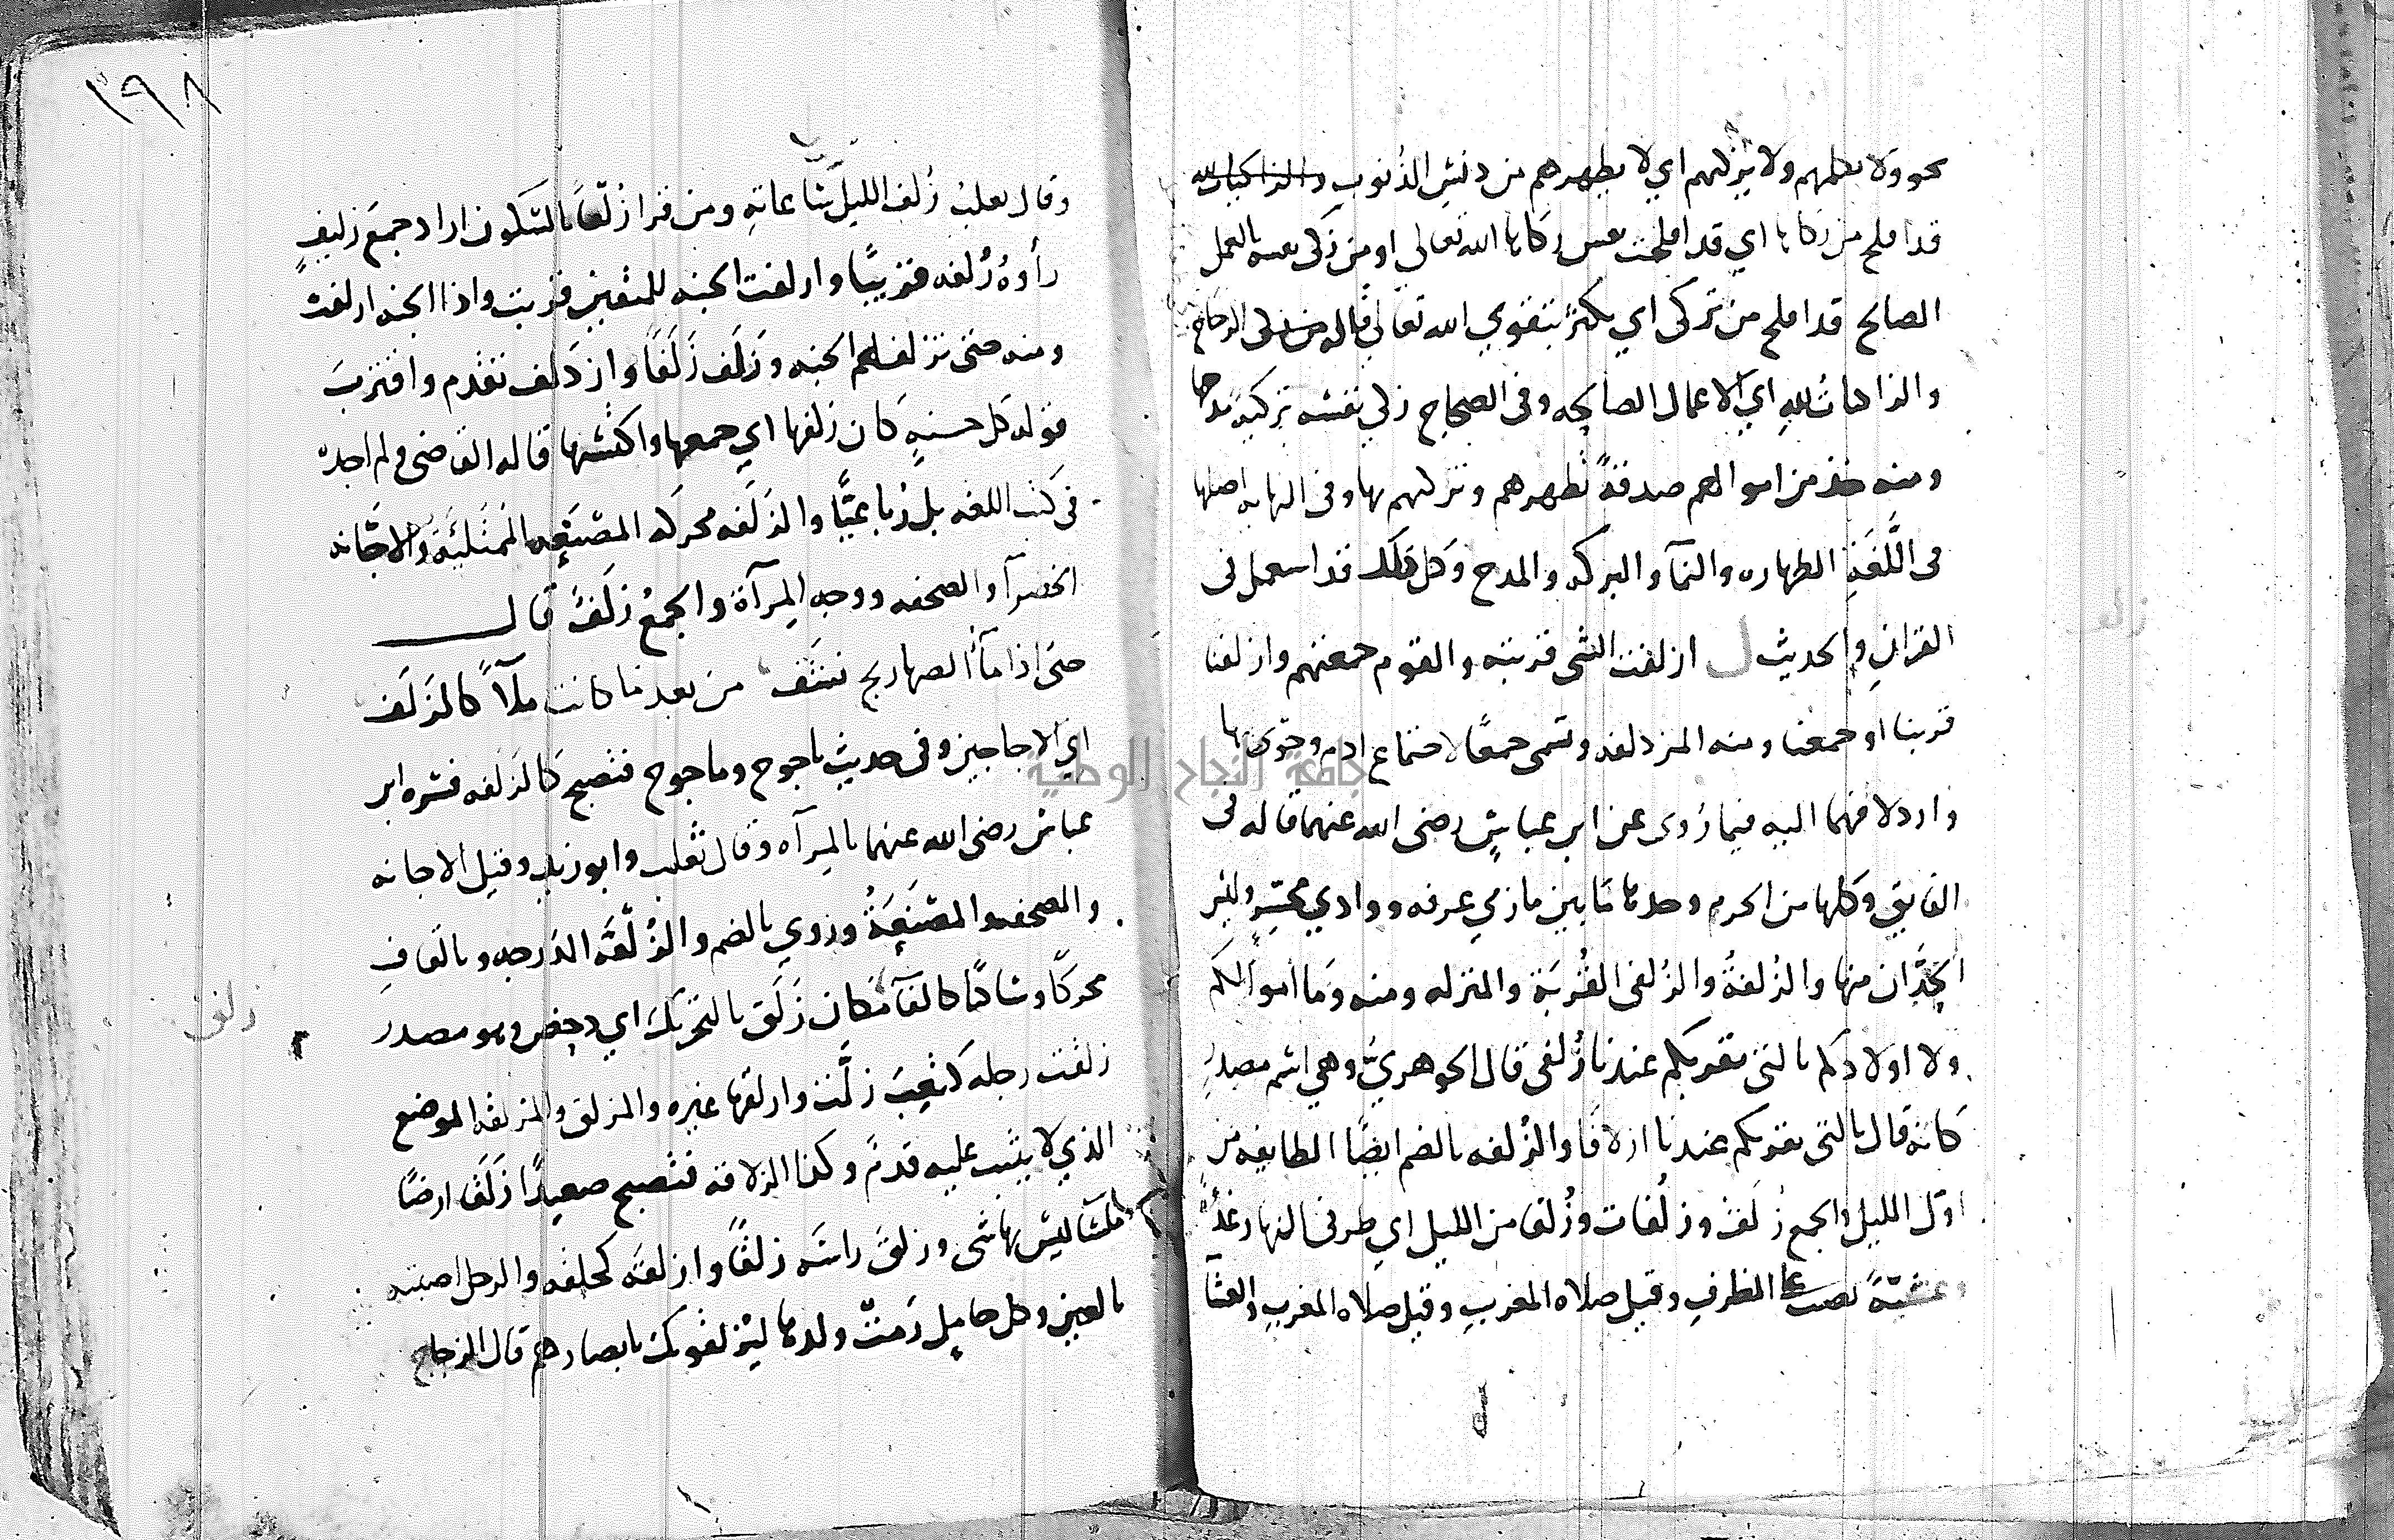 نحو ولا يكلمهم ولا يزكيهم اي لا يطهرهم من دنس الذنوب والزاكيات لله
قد افلح من زكاها اي قد افلحت نفس زكاها الله تعالى او من زكى نفسه بالعمل
الصالح قد افلح من تزكى اي تكثر بتقوى الله تعالى قاله الزجاج
والزاكيات لله اي الاعمال الصالحه وفي الصحاح زكى نفسه تزكية مدحها
ومنه خذ من اموالهم صدقةً تطهرهم وتزكيهم بها وفي النهايه اصلها
في اللُّغَةِ الطهاره والنمآ والبركه والمدح وكل ذلك قد استعمل في
القرآنِ والحديث ل ازلفت الشي قربته والقوم جمعتهم وازلفنا
قربنا او جمعنا ومنه المزدلفه وتسمى جمعًا لاجتماع ادم وحوى بها
وازدلافهما اليه فيما رُوى عن ابن عباسٍ رضى الله عنهما قاله في
الفايق وكلها من الحرم وحدها ما بين مازمي عرفه ووادي محسِّرٍ وليس
الحَدَّان منها والزُلفةُ والزُلفى القُربَة والمنزله ومنه وَما اموالكم
ولا اولادكم بالتى تقربكم عندنا زُلفى قال الجوهريُّ وهي اسم مصدرٍ
كانه قال بالتى تقربكم عندنا ازلافًا والزُلفه بالضم ايضًا الطايفه من
اوّل الليل والجمع زُلَفٌ وزلُفات وزُلفا من الليل اي طرفى النهار غدُوَّةً
وعشيّةً نصب على الظرفِ وقيل صلاه المغربِ وقيل صلاه المغربِ والعشآ
١٩٨
وقال ثعلبُ زُلف الليل سَاعاته ومن قرا زُلْفاً بالسكون اراد جمعَ زليفٍ
رأوهُ زُلفه قريبًا وازلفت الجنه للمتقين قربت واذا الجنه ازلفت
ومنه حتى تزلف لهم الجنه وزلَف زَلَفًا وازدَلف تقدم واقتربَ
قوله كل حسنةٍ كان زلفها اي جمعها واكتسبها قاله القاضى ولم اجده
في كتب اللغه بل رُباعيًّا والزَلَفه محركه المصنَعِه المُمتَلئِة والاجَّانه
الخضرآ والصحفه ووجه المِرآة والجمعُ زَلَفٌ قال
حتى اذا مآء الصهاريج نشَف من بعد ما كانت ملآً كالزَلَف
اي الاجاجين وفى حديث ياجوج وماجوج فتصبح كالزلفه فسره ابن
عباس رضى الله عنهما بالمرآه وقال ثعلب وابو زيد وقيل الاجانه
والصحفه والمصنَعَةُ وروي بالضم والزُلفَه الدَرجه وبالقافِ
زلق
محركًا وساكنًا كالفآ مكان زَلَق بالتحريك اي دحض وهو مصدر
زلقت رجله كتَعِبَ زلَّت وازلقها غيره والمزلق والمزلقه الموضع
الذي لا يثبت عليه قدمٌ وكذا الزلاقه فتصبح صعيدًا زلَقًا ارضًا
ملسَا ليس بها شى وزلق راسَه زلقًا وازلقه كحلقه والرجل اصبته
بالعين وكل حامِلٍ رَمتْ ولدها ليُزلقونك بابصارهم قال الزجاج
جامعة النجاح الوطنية